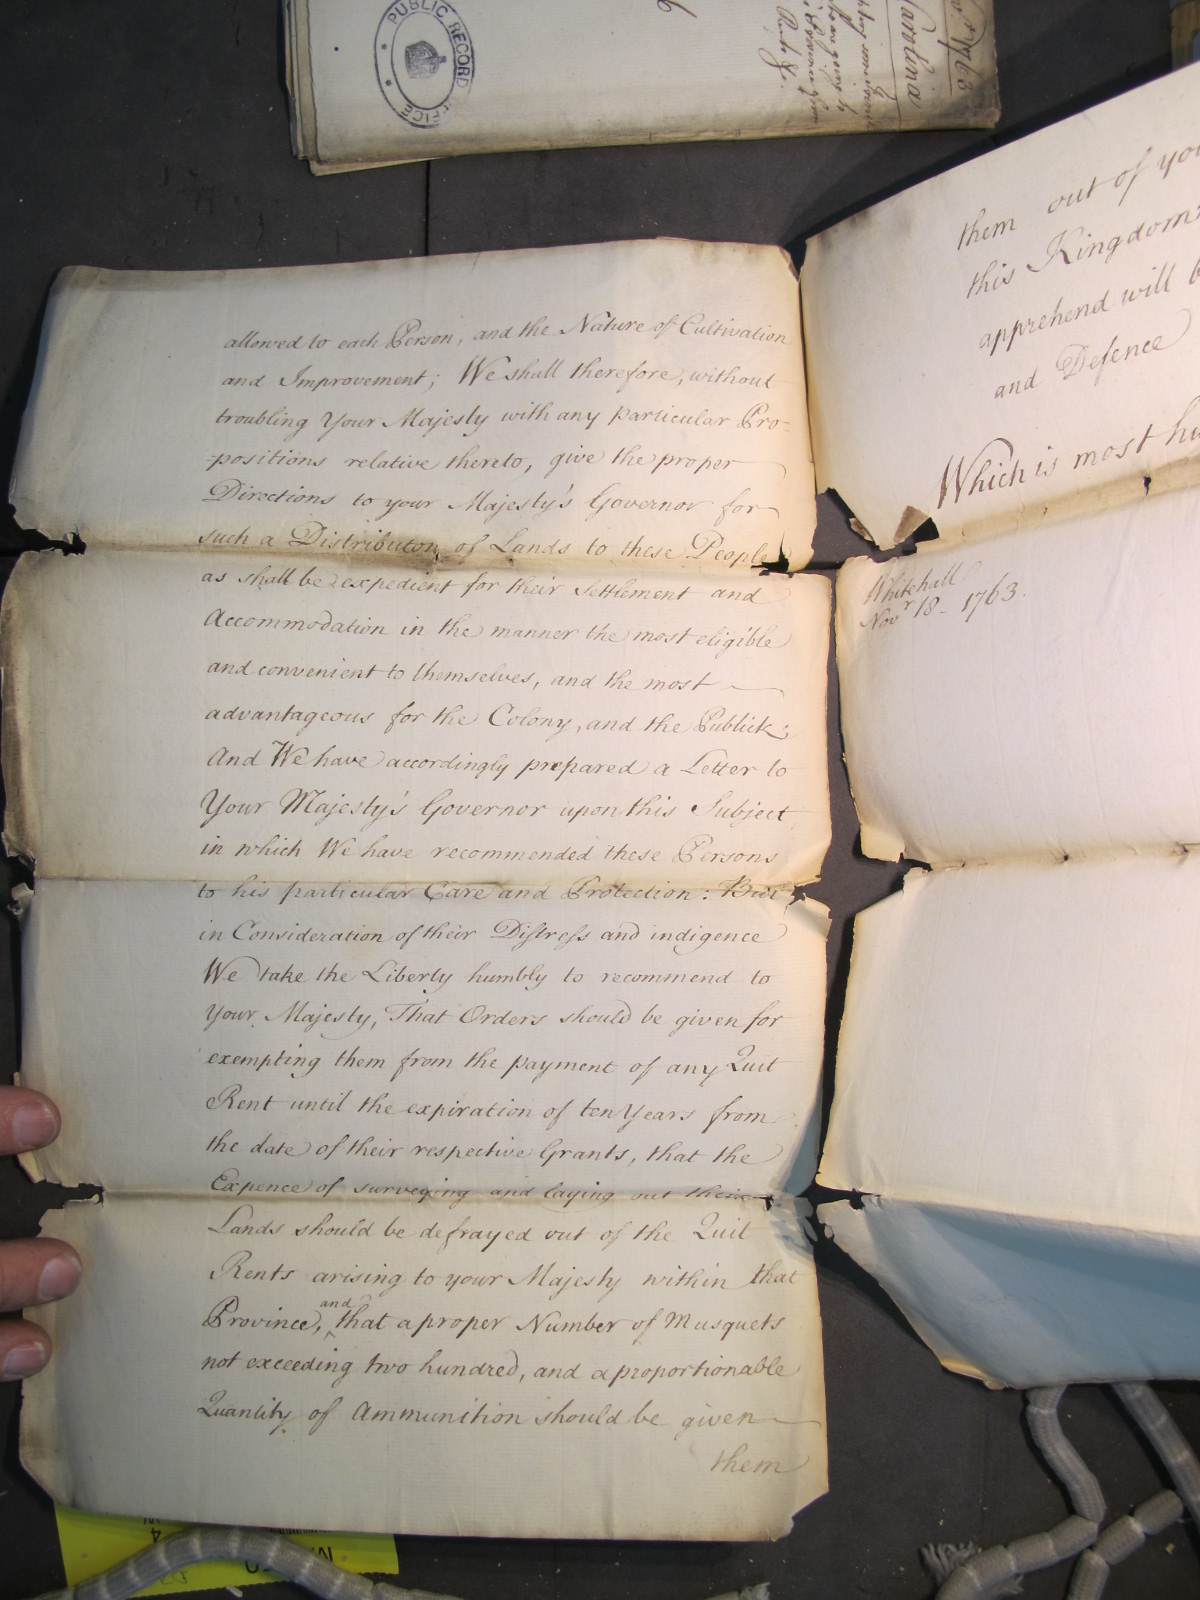 PUBLIC RECORD OFFICE
1763
Carolina
allowed to each Person, and the Nature of Cultivation
and Improvement; We shall therefore, without
troubling Your Majesty with any particular Pro=
=positions relative thereto, give the proper
Directions to your Majesty's Governor for
such a Distribution of Lands to these People
as shall be expedient for their Settlement and
Accommodation in the manner the most eligible
and convenient to themselves, and the most
advantageous for the Colony, and the Publick;
And We have accordingly prepared a Letter to
Your Majesty's Governor upon this Subject
in which We have recommended these Persons
to his particular Care and Protection: But
in Consideration of their Distress and indigence
We take the Liberty humbly to recommend to
Your Majesty, That Orders should be given for
exempting them from the payment of any Quit
Rent until the expiration of ten Years from
the date of their respective Grants, that the
Expence of surveying and laying out their
Lands should be defrayed out of the Quit
Rents arising to your Majesty within that
Province, and that a proper Number of Musquets
not exceeding two hundred, and a proportionable
Quantity of Ammunition should be given
them
them out of you
this Kingdom
apprehend will b
and Defence
Which is most hu
Whitehall
Novr 18- 1763.